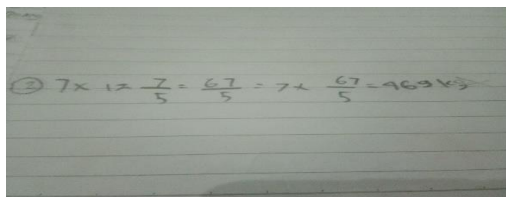 ③ 7x 12 7/5 = 67/5 = 7x 67/5 = 469 kg